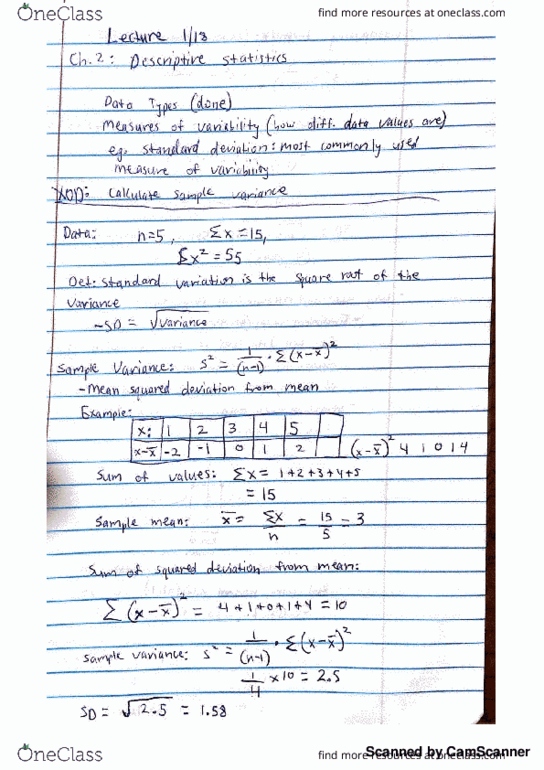 OneClass
find more resources at oneclass.com
Lecture 1/13
Ch.2: Descriptive statistics
Data Types (done)
Measures of variability (how diff. data values are)
eg. standard deviation: most commonly used
measure of variability
calculate sample variance
Data: n=5, Σx=15,
Σx² = 55
Det: standard variation is the square root of the
variance
-SD = √variance
Sample Variance: s² = 1/(n-1) · Σ(x-x̄)²
-Mean squared deviation from mean
Example:
x: 1 2 3 4 5
x-x̄ -2 -1 0 1 2 (x-x̄)² 4 1 0 1 4
Sum of values: Σx = 1+2+3+4+5
= 15
Sample mean: x̄ = Σx/n = 15/5 = 3
Sum of squared deviation from mean:
Σ(x-x̄)² = 4+1+0+1+4 = 10
sample variance: s² = 1/(n-1) · Σ(x-x̄)²
1/4 x10 = 2.5
SD = √2.5 = 1.58
OneClass
find more resources at oneclass.com
Scanned by CamScanner